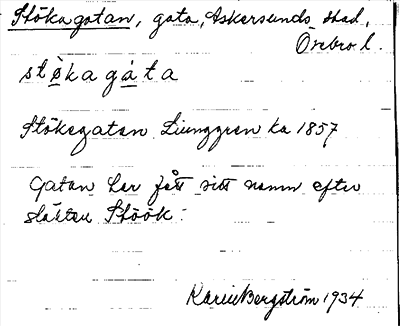 Stökagatan, gata, Askersunds stad,
Örebro l.
støkagáta
Stökagatan Ljunggren ka 1857
Gatan har fått sitt namn efter
släkten Stöök.
Karin Bergström 1934